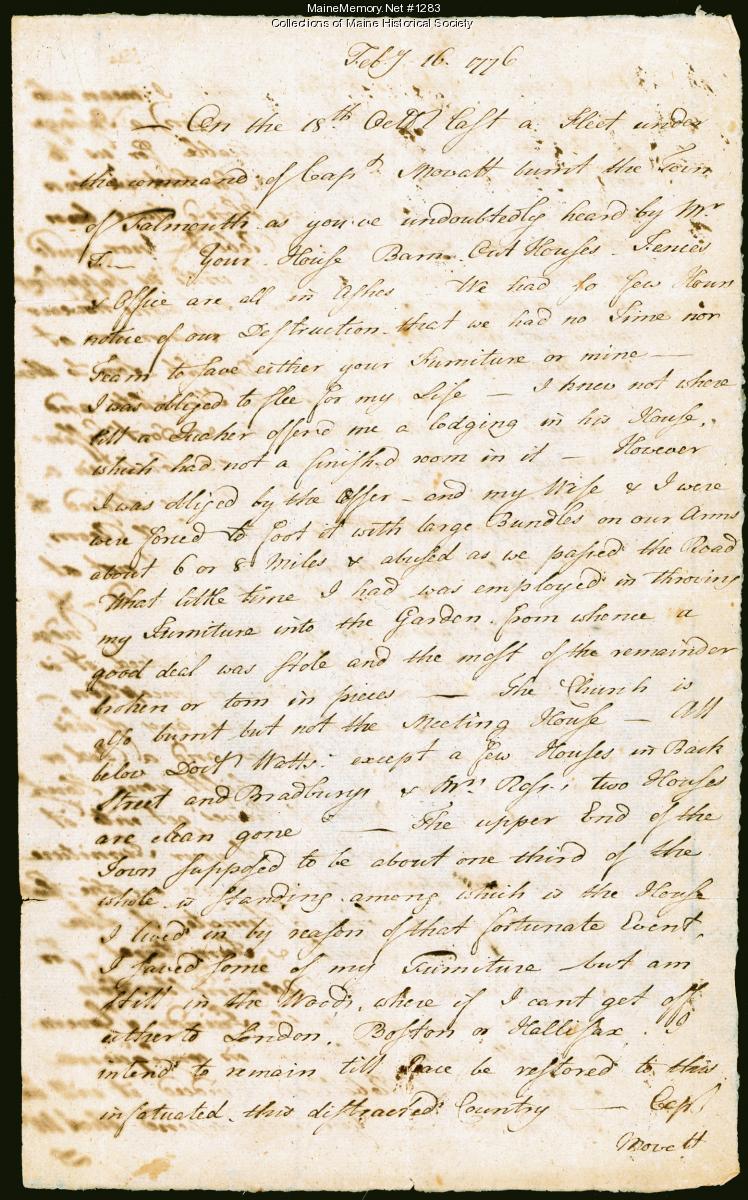 MaineMemory.Net #1283
Collections of Maine Historical Society
Feby. 16. 1776
— On the 18th Octr last a Fleet under
the command of Capt Mowatt burnt the Town
of Falmouth as you've undoubtedly heard by Mr
T.— Your House Barn Out Houses Fences
& Office are all in Ashes — We had so few Hours
notice of our Destruction that we had no Time nor
Team to save either your Furniture or mine —
I was obliged to flee for my Life — I knew not where
till a Quaker offer'd me a lodging in his House,
which had not a finish'd room in it — However
I was obliged by the Offer — and my Wife & I were
were forced to foot it with large Bundles on our Arms
about 6 or 8 Miles & abused as we passed the Road
What little time I had was employed in throwing
my Furniture into the Garden from whence a
good deal was stole and the most of the remainder
broken or torn in pieces — The Church is
also burnt but not the Meeting House — All
below Doctr Watts: except a few Houses in Back
Street and Bradburys & Mrs Ross's two Houses
are clean gone — The upper End of the
Town supposed to be about one third of the
whole is standing among which is the House
I lived in by reason of that fortunate Event,
I saved some of my Furniture but am
still in the Woods, where if I cant get off
either to London, Boston or Hallifax I
intend to remain till Peace be restored to this
infatuated this distracted Country — Capt
Mowatt